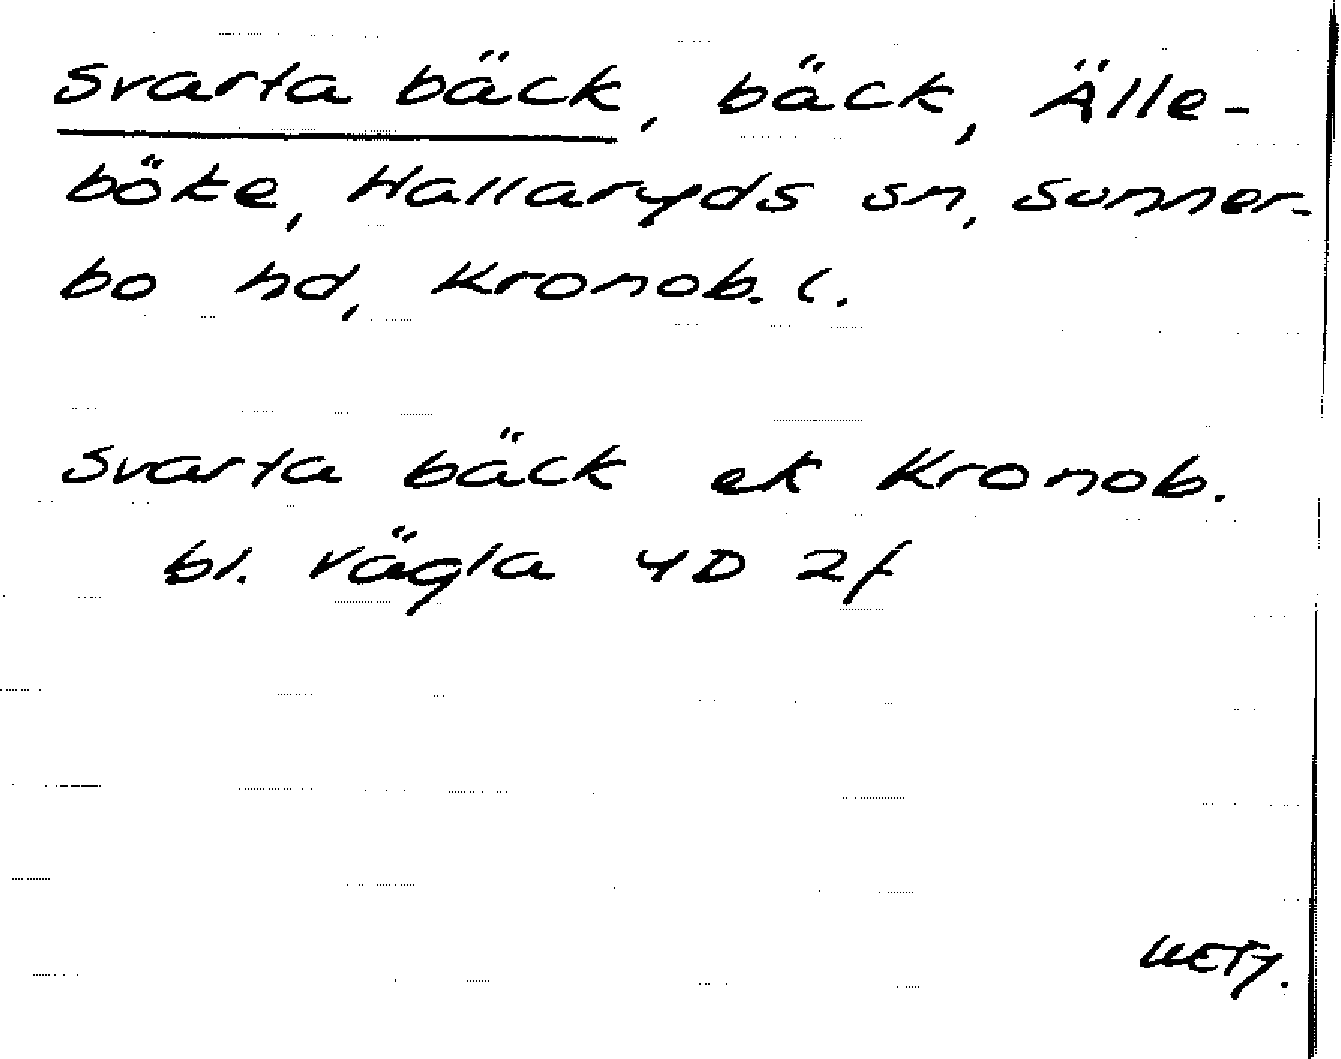 Svarta bäck, bäck, Älle-
böke, Hallaryds sn, Sunner-
bo hd, Kronob. l.
Svarta bäck ek Kronob.
bl. Vägla 4D 2f